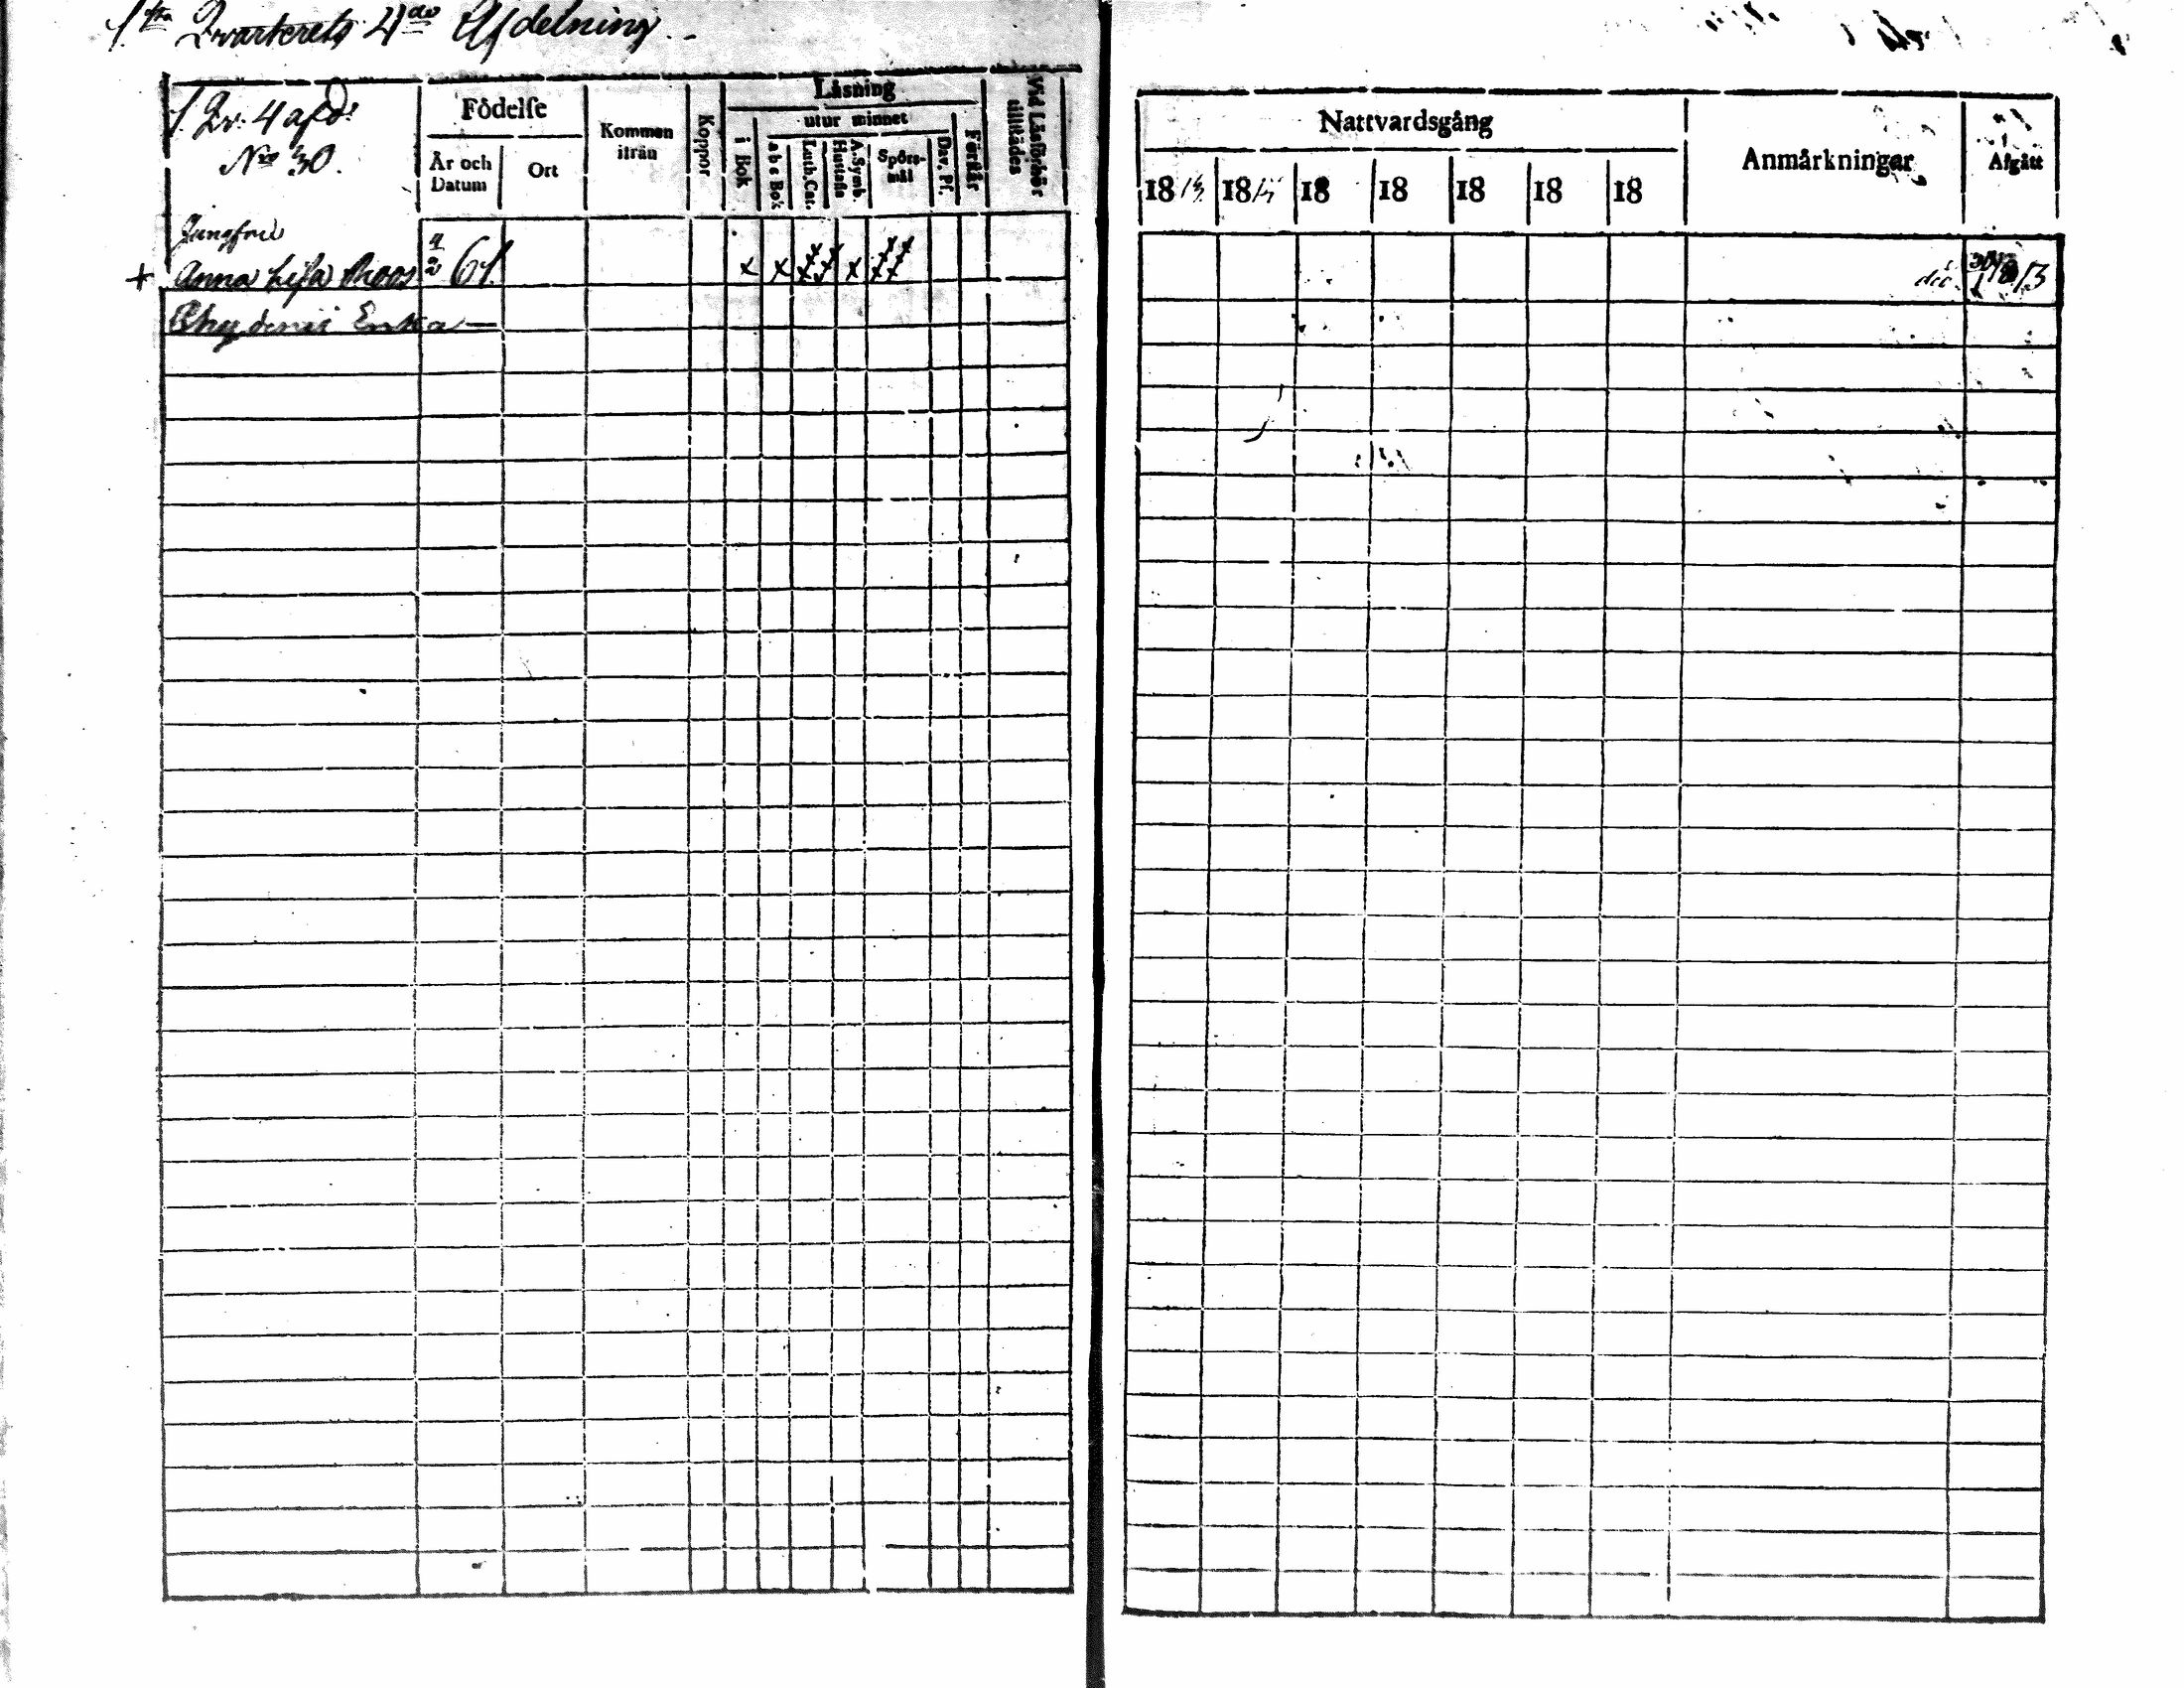 1sta Qvarterets 4de Afdelning.
1 Qv. 4 afd.
No 30.
Födelse
År och
Datum
Ort
Kommen
ifrån
Koppor
Läsning
i Bok
utur minnet
a b c Bok
Luth. Cat.
A. Symb.
Hustafla
Spörs-
mål
Dav. Ps.
Förstår
Vid Läsförhör
tillstädes
Jungfru
+ Anna Lisa Roos 61. x x x
Enka
Nattvardsgång
18 18 18 18 18 18 18
Anmärkningar
Afgått